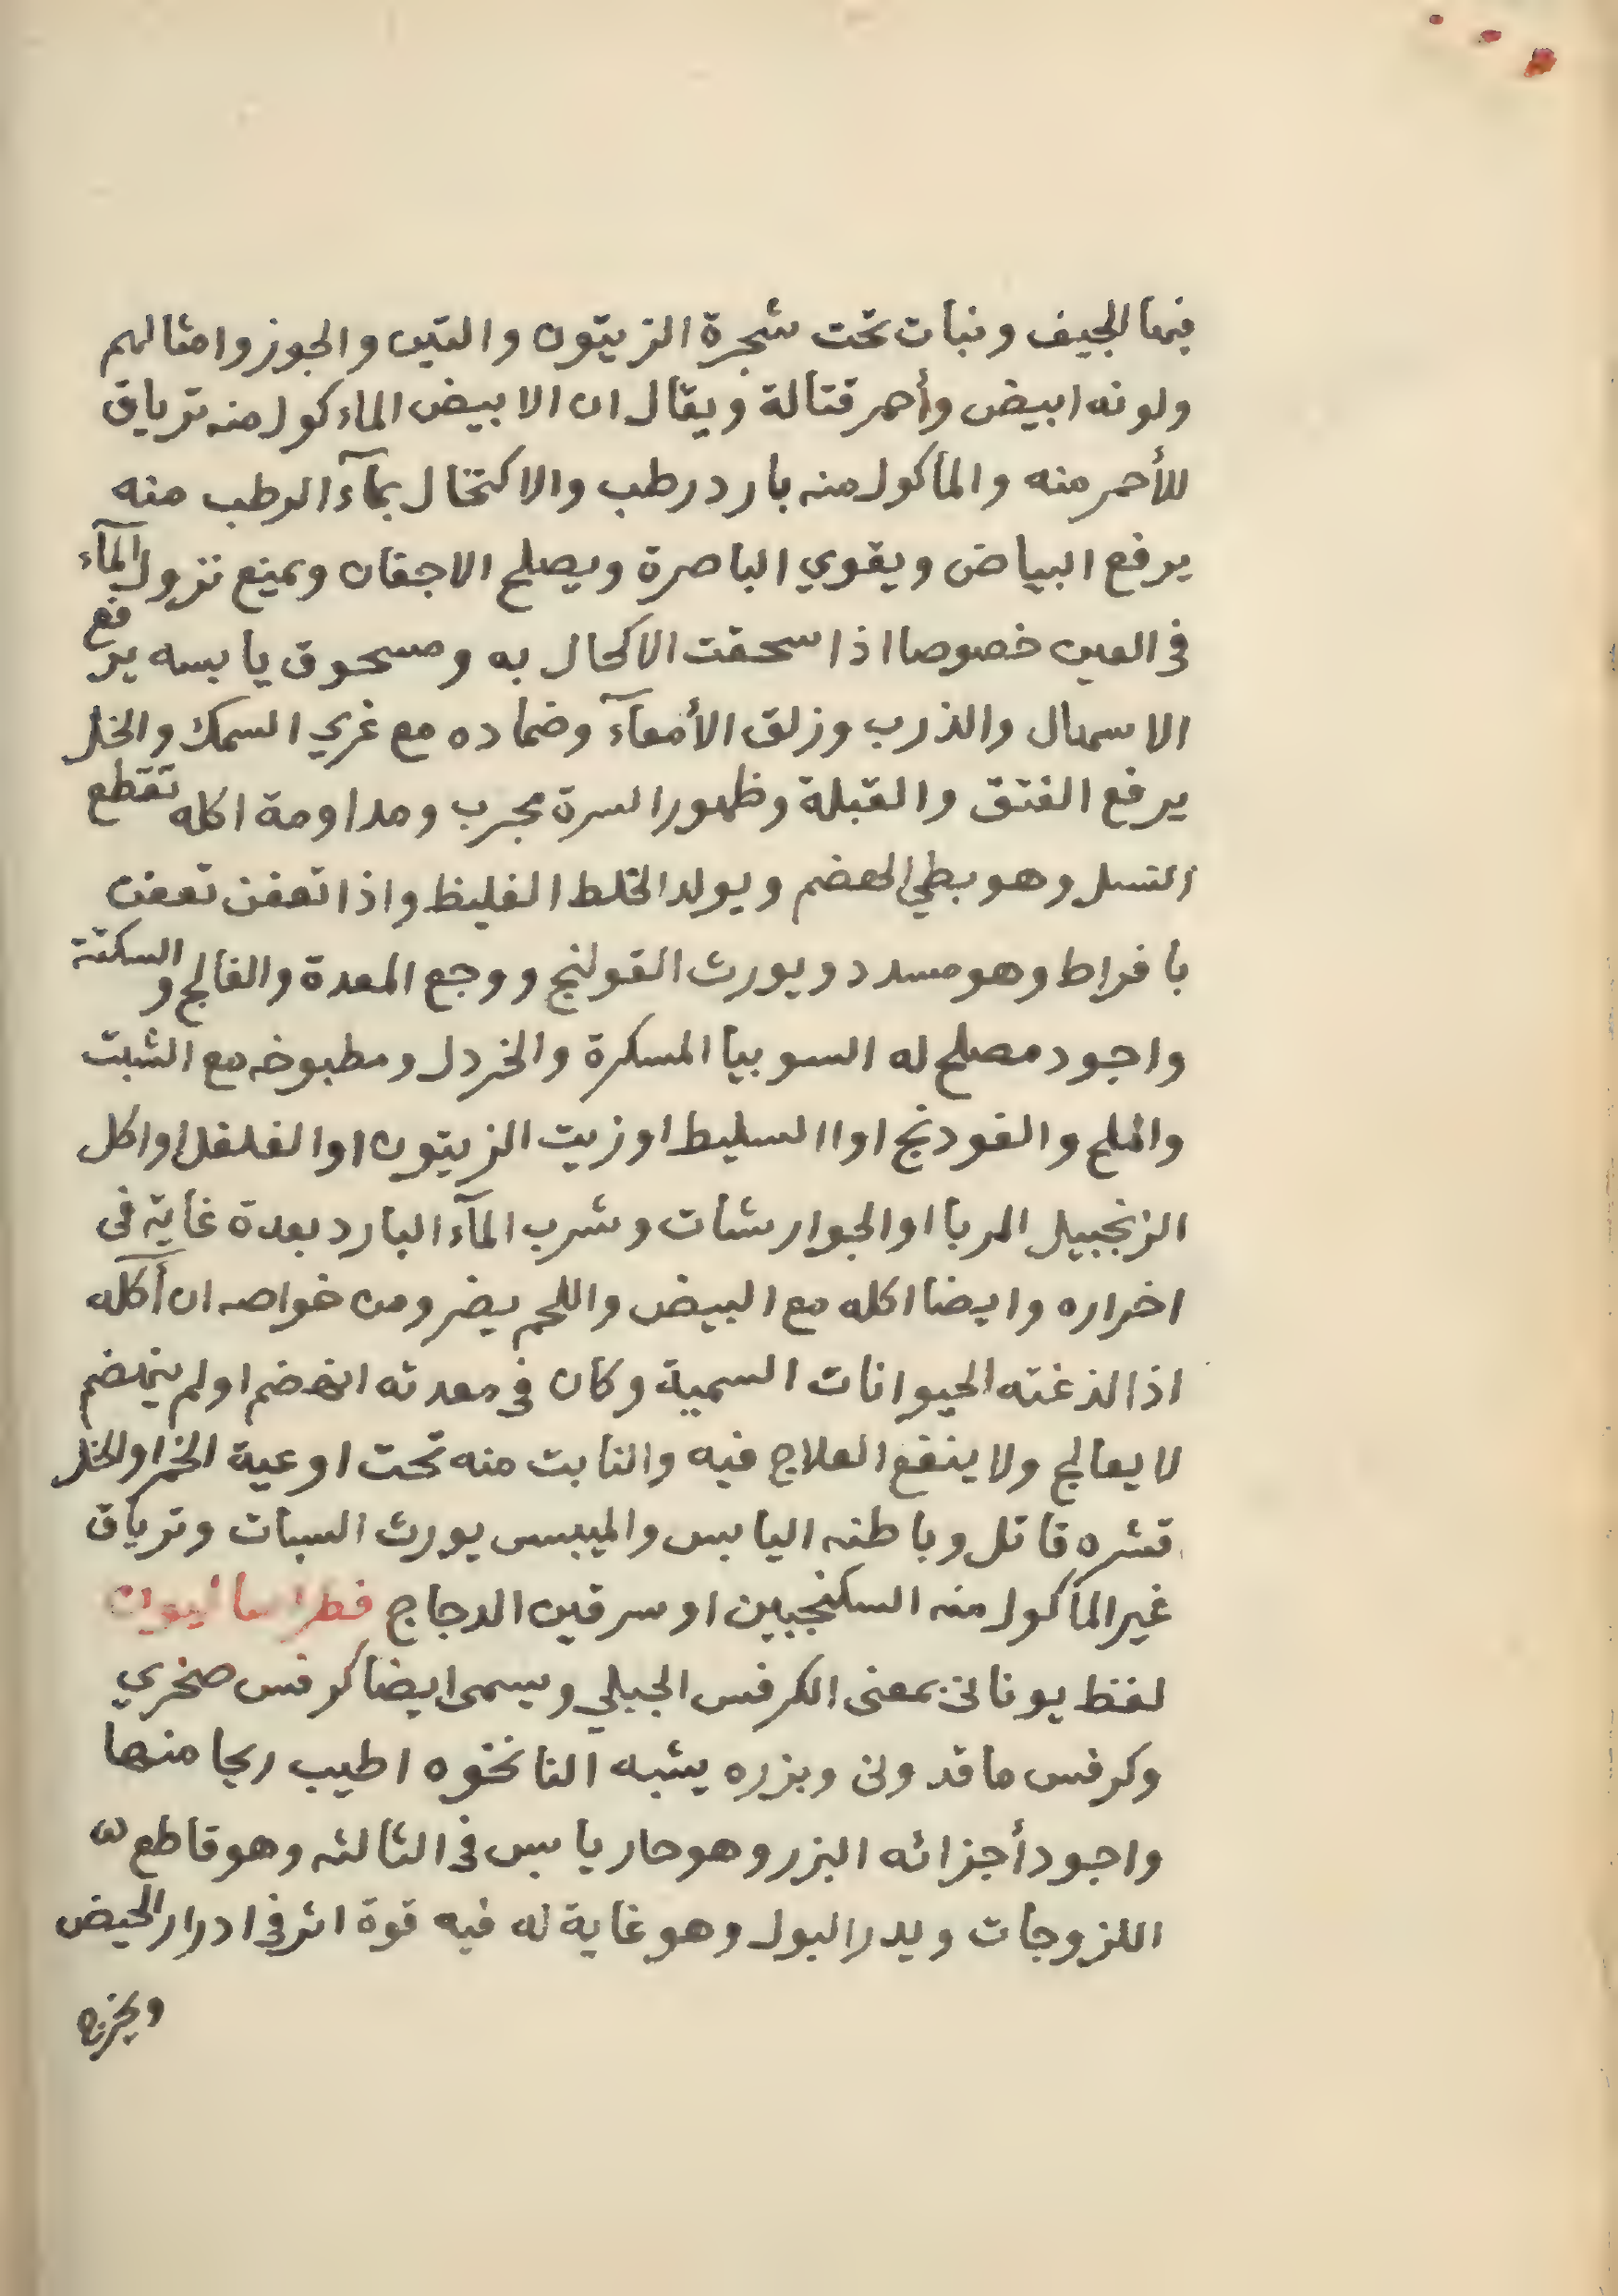 فيها الجيف ونبات تحت شجرة الزيتون والتين والجوز وامثالهم
ولونه ابيض وأحمر قتالة ويقال ان الابيض الماءكول منه ترياق
للأحمر منه والمأكول منه بارد رطب والاكتحال بمآء الرطب منه
يرفع البياض ويقوي الباصرة ويصلح الاجفان ويمنع نزول المآء
فى العين خصوصا اذا سحقت الاكحال به ومسحوق يابسه يرفع
الاسهال والذرب وزلق الأمعآء وضماده مع غري السمك والخل
يرفع الفتق والقيلة وظهور السرة مجرب ومداومة اكله تقطع
النسل وهو بطي الهضم ويولد الخلط الغليظ واذا تعفن تعفن
بافراط وهو مسدد ويورث القولنج ووجع المعدة والفالج والسكتة
واجود مصلح له السوبيا المسكرة والخردل ومطبوخه مع الشبت
والملح والفودنج اواالسليط اوزيت الزيتون اوالفلفل اواكل
الزنجبيل المربا اوالجوارشات وشرب المآء البارد بعدة غاية فى
اضراره وايضا اكله مع البيض واللحم يضر ومن خواصه ان أكله
اذا لذغته الحيوانات السمية وكان فى معدته انهضم اولم ينهضم
لا يعالج ولا ينفع العلاج فيه والنابت منه تحت اوعية الخمر اوالخل
قشره قاتل وباطنه اليابس والميبس يورث السبات وترياق
غير المأكول منه السكنجبين او سرقين الدجاج فطراساليون
لفظ يونانى بمعنى الكرفس الجبلي ويسمى ايضا كرفس صخري
وكرفس ماقدونى وبزره يشبه النانخوه اطيب ريحا منها
واجود أجزائه البزر وهو حار يابس فى الثالثه وهو قاطع
اللزوجات ويدر البول وهو غاية له فيه قوة اثر فى ادرار الحيض
ويخرج